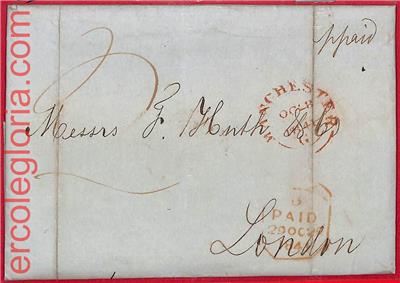 ercolegloria.com
ppaid
2
MANCHESTER
Messrs F. Huth & Co
PAID
London